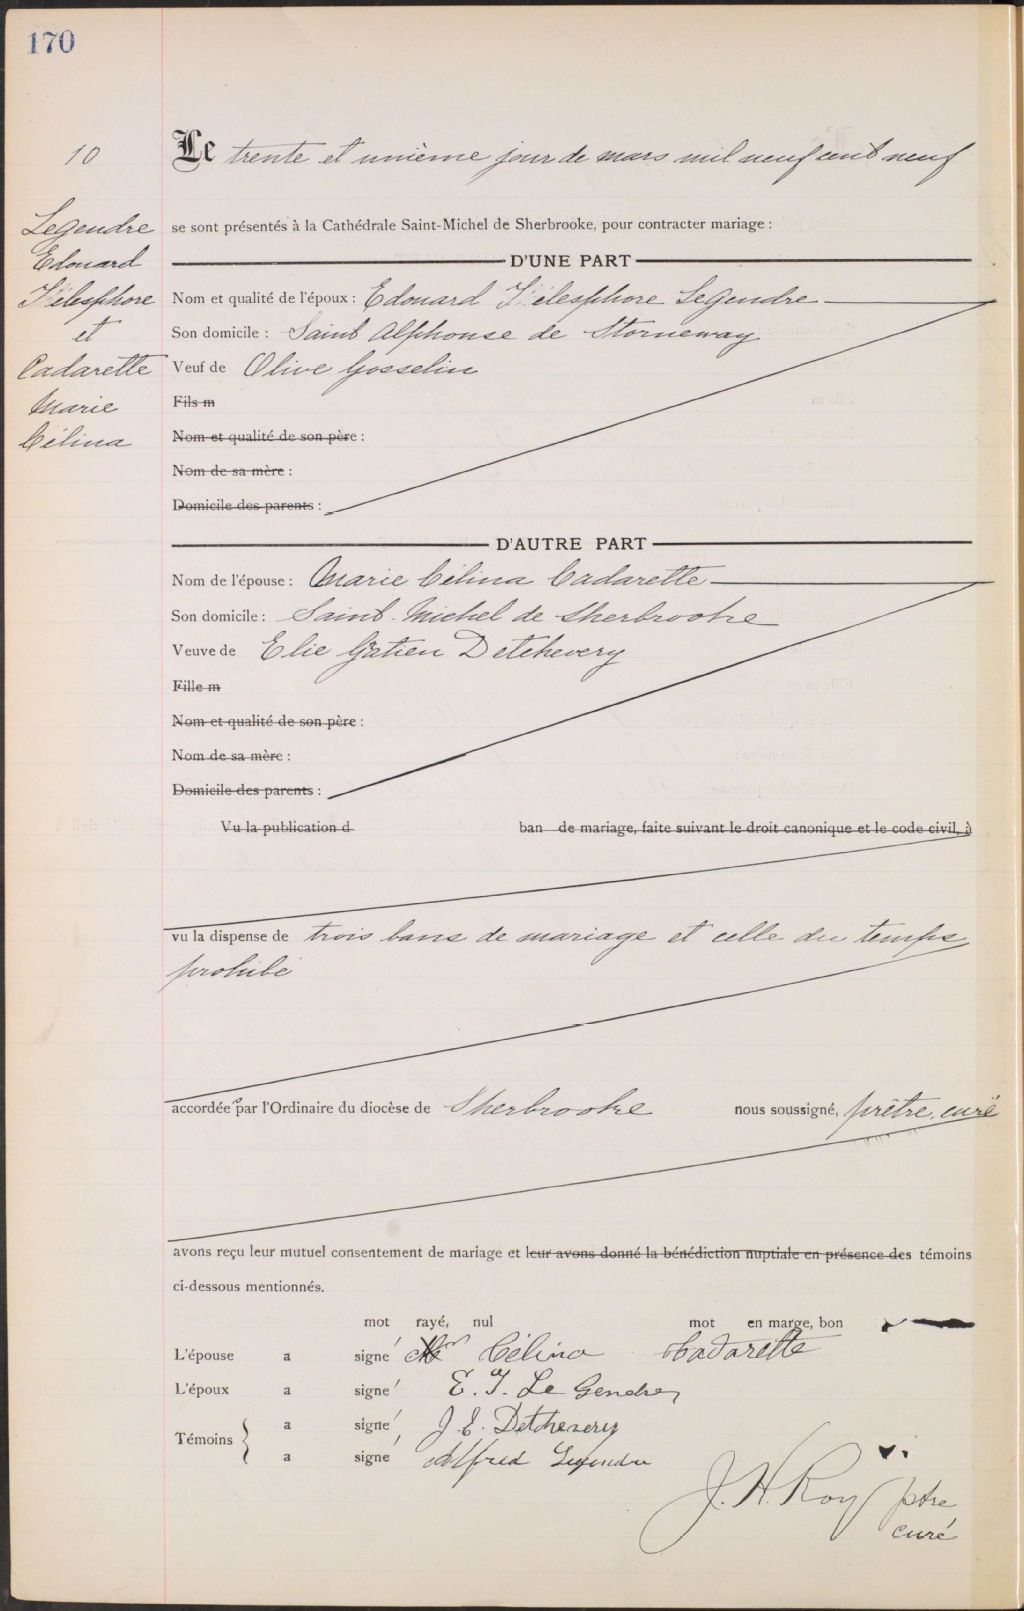 170
10
Le trente et unième jour de mars mil neuf cent neuf
Legendre
Edouard
Télesphore
et
Cadarette
Marie
Célina
se sont présentés à la Cathédrale Saint-Michel de Sherbrooke, pour contracter mariage :
D'UNE PART
Nom et qualité de l'époux : Edouard Télesphore Legendre
Son domicile : Saint Alphonse de Storneway
Veuf de Olive Gosselin
Fils m
Nom et qualité de son père :
Nom de sa mère :
Domicile des parents :
D'AUTRE PART
Nom de l'épouse : Marie Célina Cadarette
Son domicile : Saint-Michel de Sherbrooke
Veuve de Elie Gatien Detchevery
Fille m
Nom et qualité de son père :
Nom de sa mère :
Domicile des parents :
Vu la publication d ban de mariage, faite suivant le droit canonique et le code civil, à
vu la dispense de trois bans de mariage et celle du temps
prohibé
accordées par l'Ordinaire du diocèse de Sherbrooke nous soussigné, prêtre, curé
avons reçu leur mutuel consentement de mariage et leur avons donné la bénédiction nuptiale en présence des témoins
ci-dessous mentionnés.
mot rayé, nul mot en marge, bon
L'épouse a signé Célina Cadarette
L'époux a signé E. T. Le Gendre
Témoins { a signé J. E. Detcheverry
a signé Alfred Legendre
J. H. Roy ptre
curé